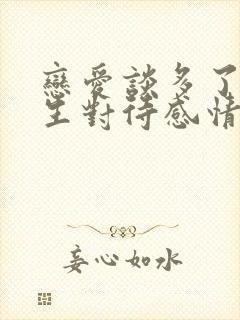 戀愛談多了
生對待感情
妄心如水